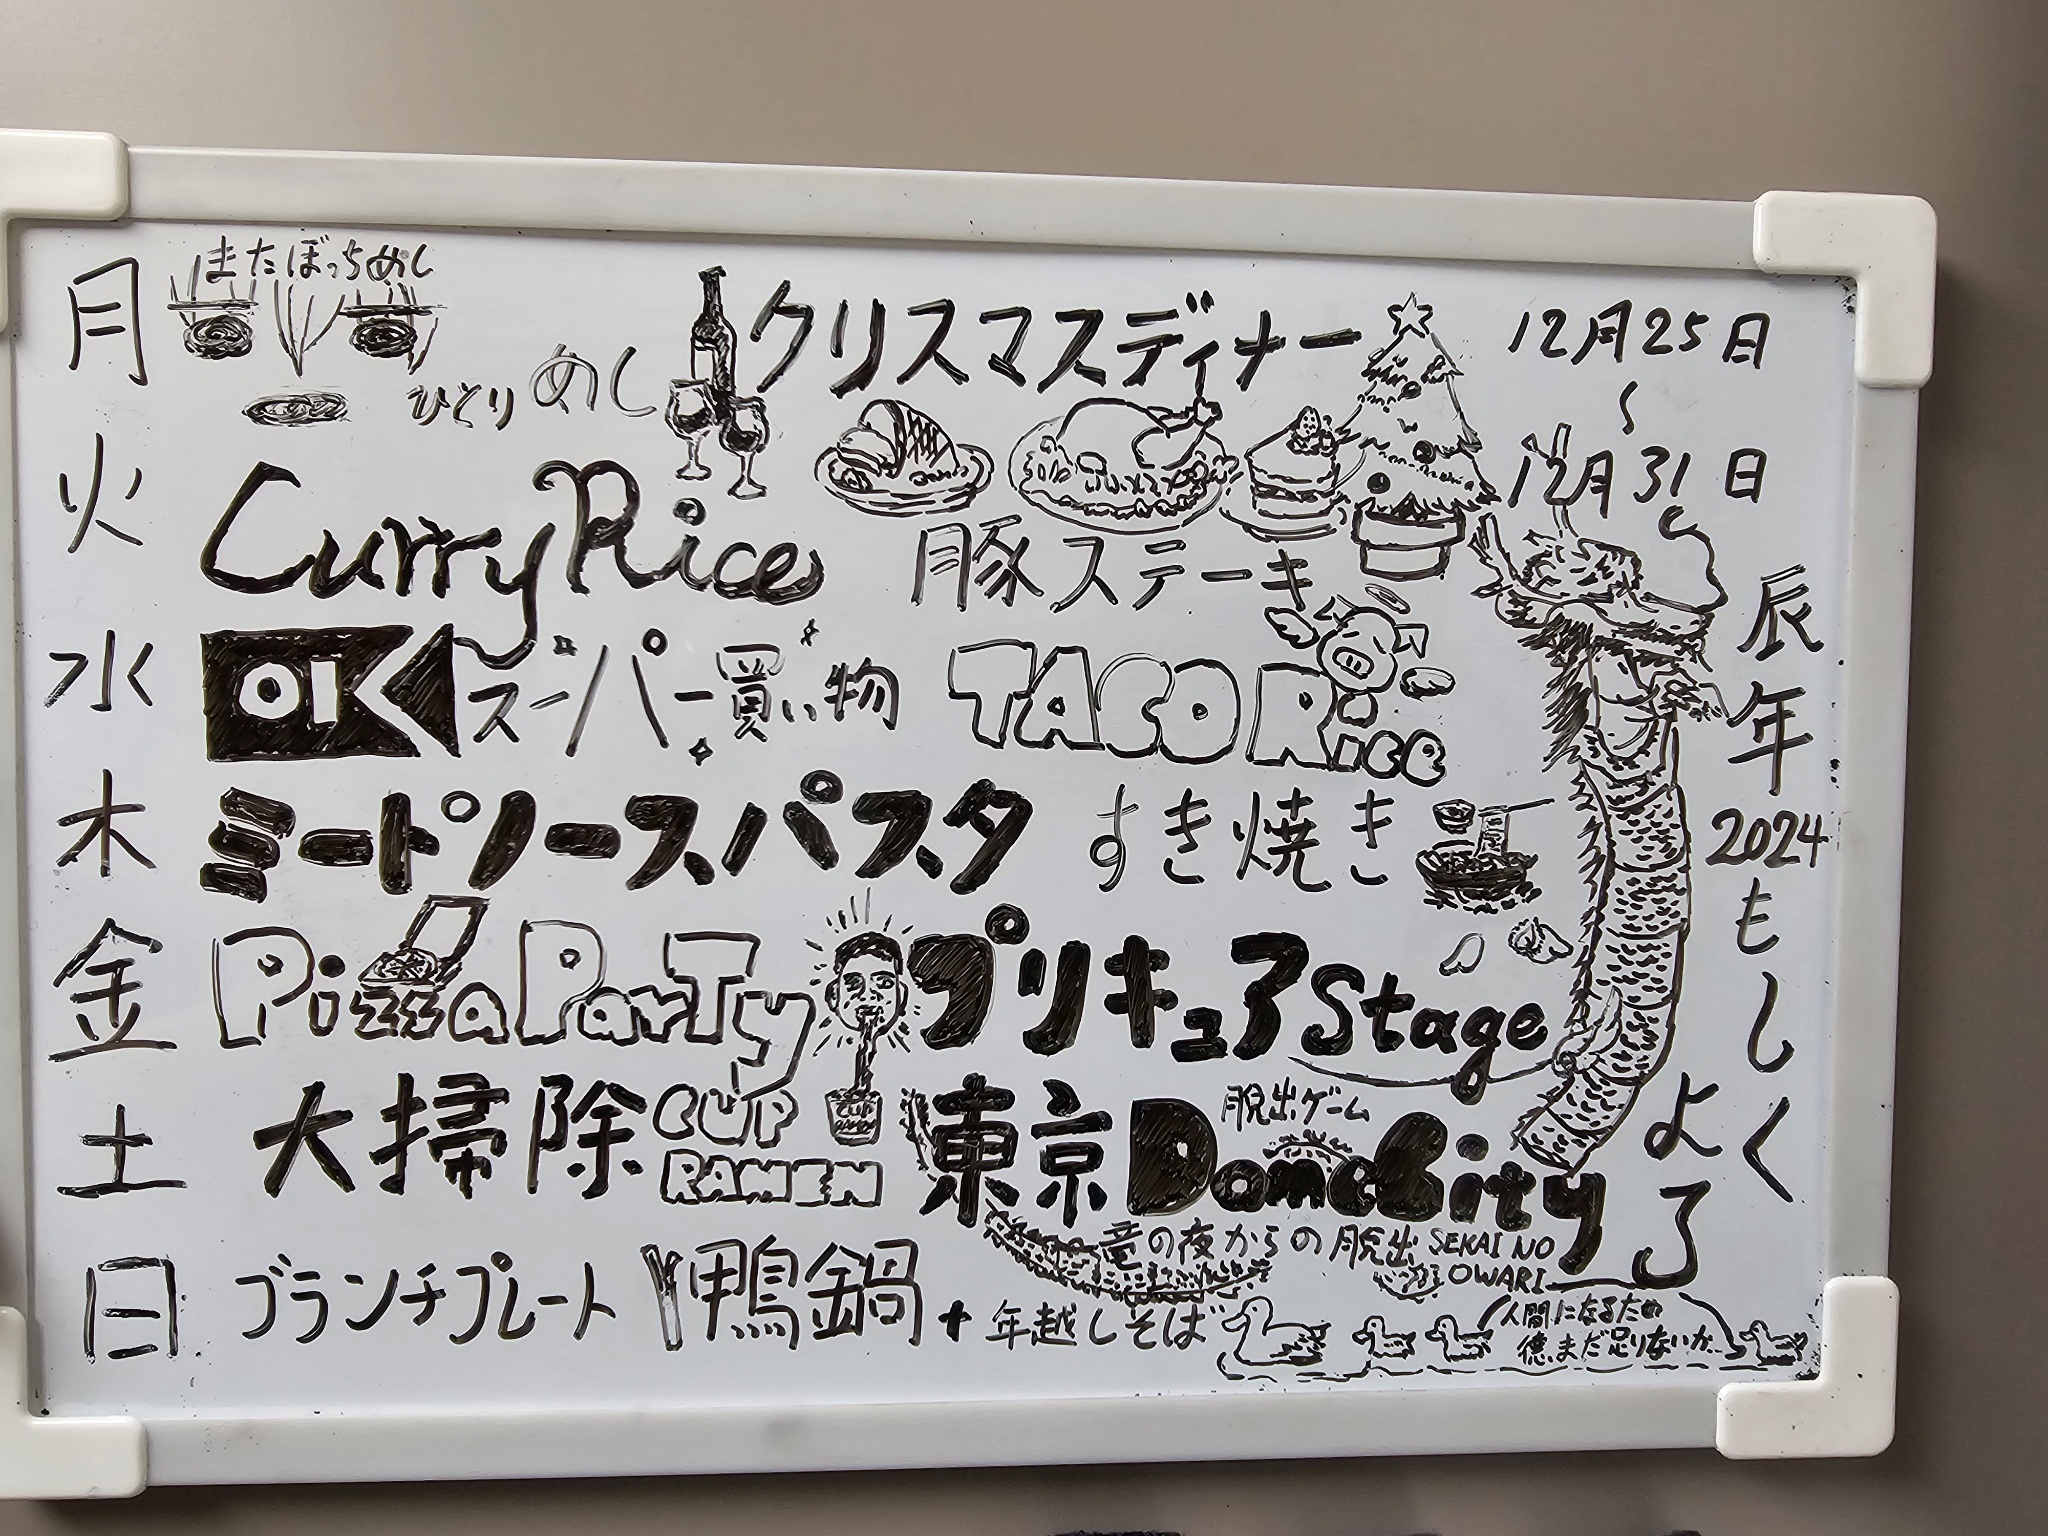 月 またぼっちめし
ひとりめし クリスマスディナー
12月25日
〜
12月31日
火 Curry Rice 豚ステーキ
水 OK スーパー買い物 TACO Rice
木 ミートソースパスタ すき焼き
金 Pizza Party プリキュア Stage
土 大掃除 CUP RAMEN 東京 Dome City
CUP
脱出ゲーム
竜の夜からの脱出 SEKAI NO OWARI
日 ブランチプレート 鴨鍋 + 年越しそば
人間になるため
徳、まだ足りないか…
辰年
2024
もしく
よろ